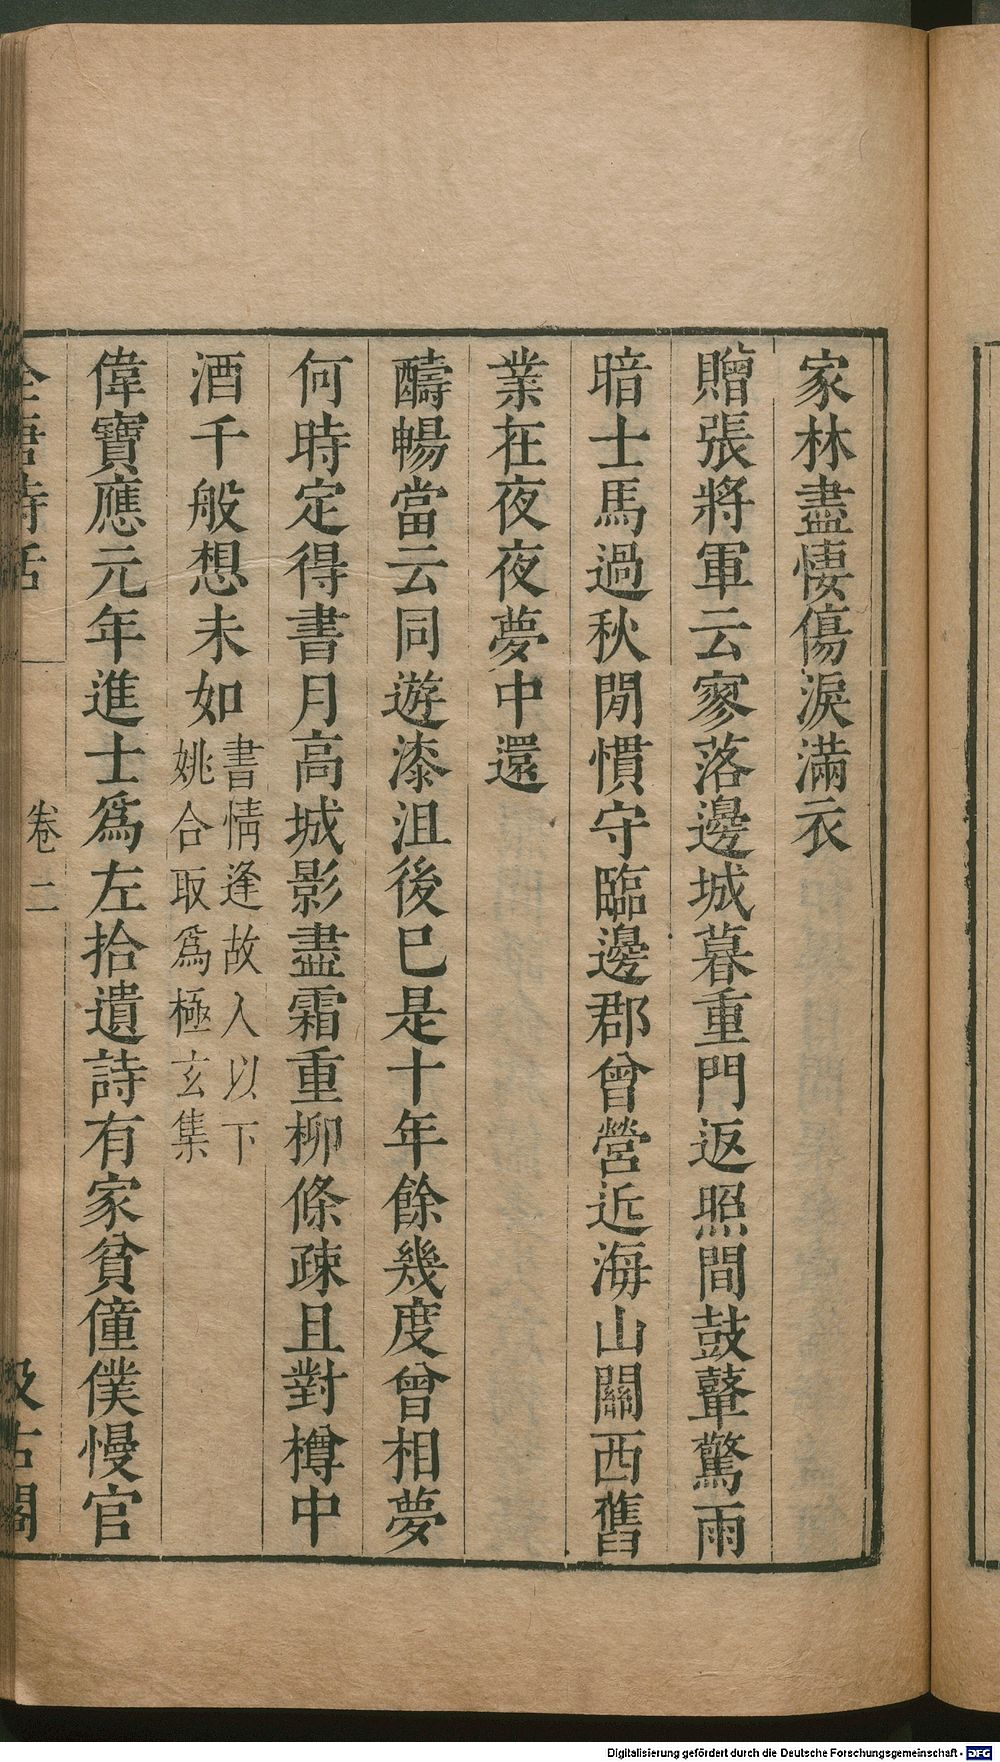 家林盡悽傷淚滿衣
贈張將軍云寥落邊城暮重門返照間鼓鼙驚雨
暗士馬過秋閒慣守臨邊郡曾營近海山關西舊
業在夜夜夢中還
醻暢當云同遊漆沮後巳是十年餘幾度曾相夢
何時定得書月高城影盡霜重柳條疎且對樽中
酒千般想未如
書情逢故人以下
姚合取爲極玄集
偉寶應元年進士爲左拾遺詩有家貧僮僕慢官
全唐詩話
卷二
汲古閣
Digitalisierung gefördert durch die Deutsche Forschungsgemeinschaft - DFG